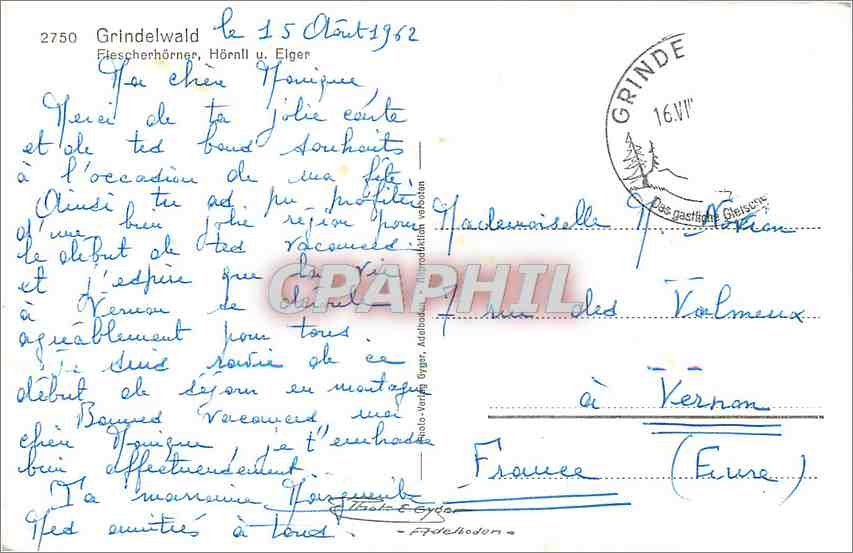 2750 Grindelwald le 15 Août 1962
Fiescherhörner, Hörnli u. Eiger
Ma chère Monique,
Merci de ta jolie carte
et de tes bons souhaits
à l'occasion de ma fête.
Ainsi tu as pu profiter
d'une bien jolie région pour
le début de tes vacances
et j'espère que la vie
à Vernon se déroule
agréablement pour tous.
Je suis ravie de ce
début de séjour en montagne
Bonnes vacances ma
chère Monique, je t'embrasse
bien affectueusement.
Ta marraine Marguerite
Mes amitiés à tous.
Photo E. Gyger
- Adelboden -
Photo-Verlag Gyger, Adelboden - Reproduktion verboten
GRINDE
16.VI
Das gastliche Gletsche
Mademoiselle M.
7 rue des Valmeux
à Vernon
France (Eure)
CPAPHIL